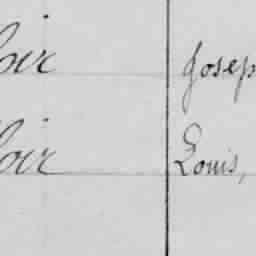 oir Josep
oir Louis,